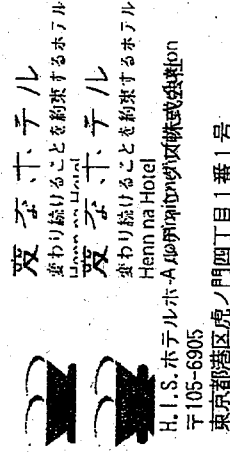 変なホテル
変わり続けることを約束するホテル
Henn na Hotel
変なホテル
変わり続けることを約束するホテル
Henn na Hotel
H.I.S.ホテルホ
〒105-6905
東京都港区虎ノ門四丁目1番1号